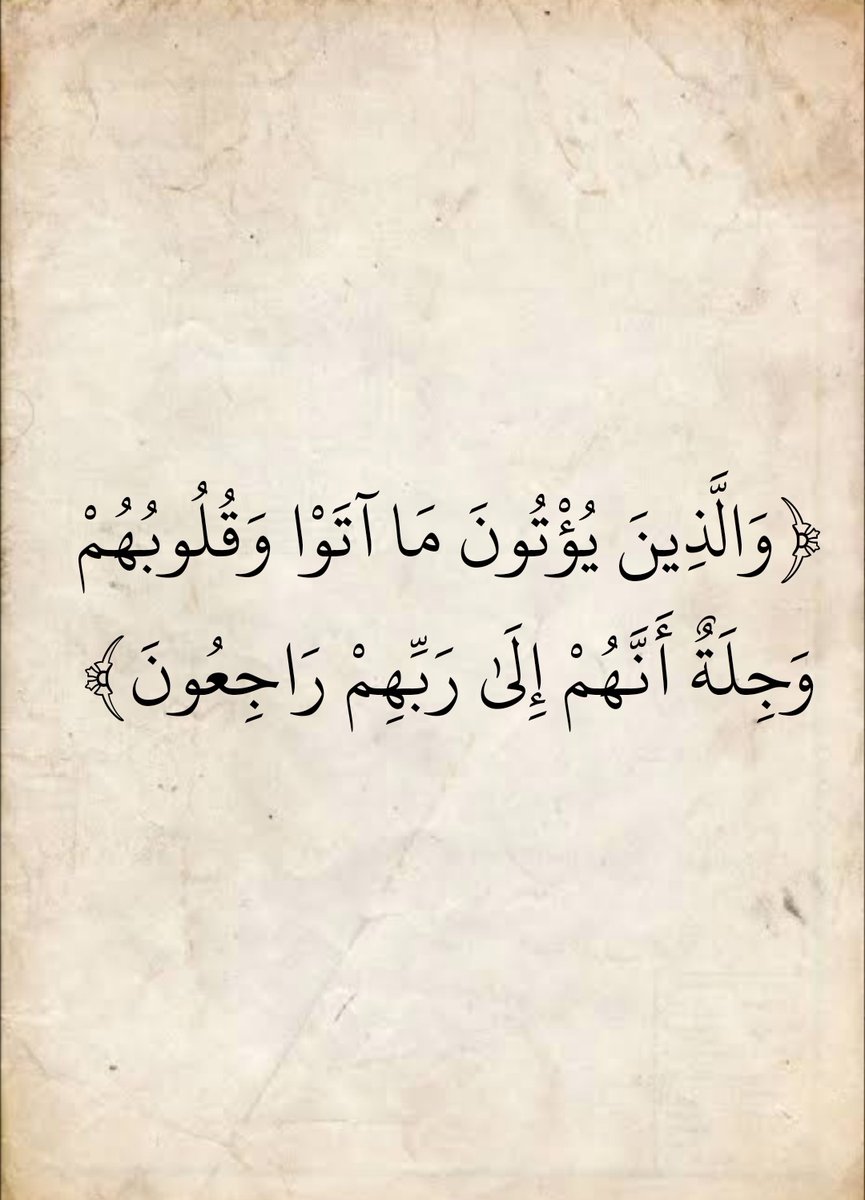 ﴿وَالَّذِينَ يُؤْتُونَ مَا آتَوْا وَقُلُوبُهُمْ
وَجِلَةٌ أَنَّهُمْ إِلَىٰ رَبِّهِمْ رَاجِعُونَ﴾